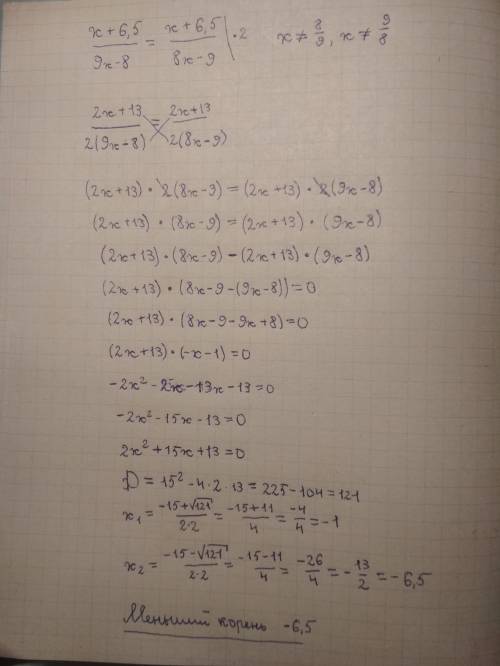 (x+6,5)/(9x-8) = (x+6,5)/(8x-9) | ·2   x ≠ 8/9, x ≠ 9/8
(2x+13)/(2(9x-8)) = (2x+13)/(2(8x-9))
(2x+13) · 2(8x-9) = (2x+13) · 2(9x-8)
(2x+13) · (8x-9) = (2x+13) · (9x-8)
(2x+13) · (8x-9) - (2x+13) · (9x-8)
(2x+13) · (8x-9-(9x-8)) = 0
(2x+13) · (8x-9-9x+8) = 0
(2x+13) · (-x-1) = 0
-2x² - 2x - 13x - 13 = 0
-2x² - 15x - 13 = 0
2x² + 15x + 13 = 0
D = 15² - 4·2·13 = 225 - 104 = 121
x₁ = (-15+√121)/(2·2) = (-15+11)/4 = -4/4 = -1
x₂ = (-15-√121)/(2·2) = (-15-11)/4 = -26/4 = -13/2 = -6,5
Меньший корень -6,5